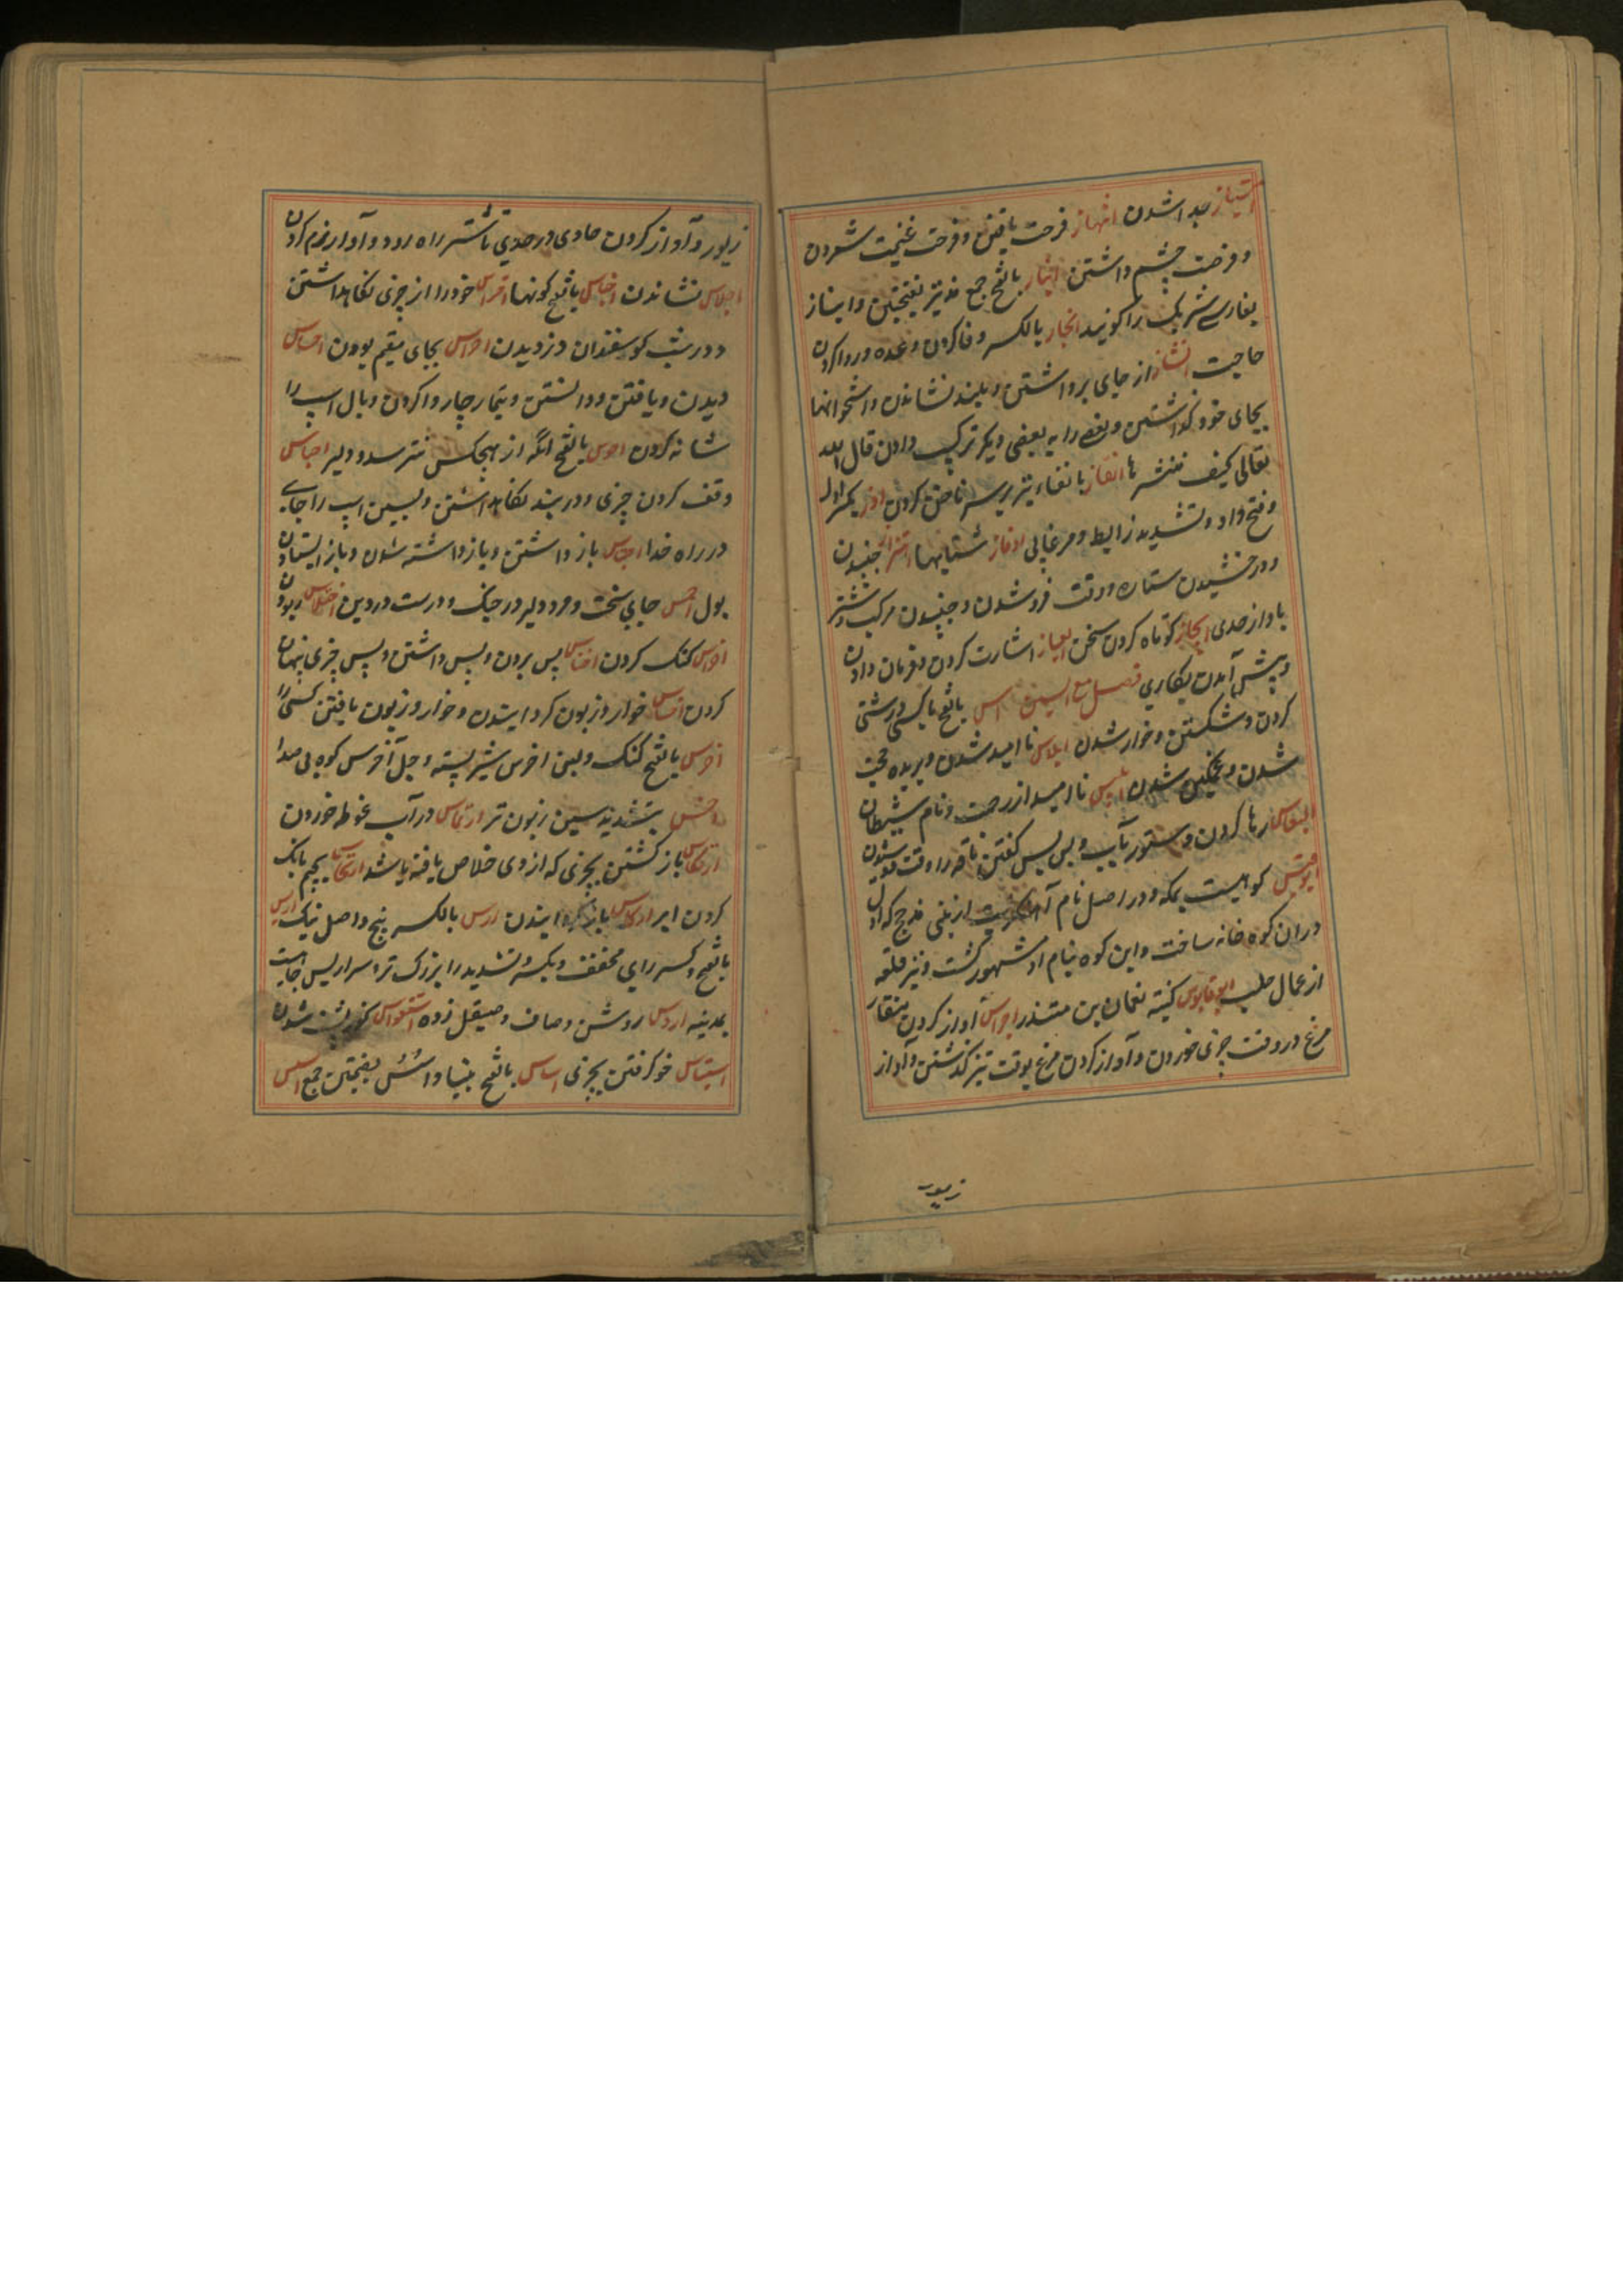 امتیاز جدا شدن انتهاز فرصت یافتن و فرصت غنیمت شمردن
و فرصت چشم داشتن بالفتح جمع بفتحتین و انباز
بفارسی شریک را گویند انجاز بالکسر وفا کردن وعده و روا کردن
حاجت انشاز از جای برداشتن و بلند نشاندن و استخوانها
بجای خود گذاشتن و بعضی را به بعضی دیگر ترکیب دادن قال الله
تعالی کیف ننشزها انفاز با نفاء تیر بر سر ناخن کردن اوز بکسر اول
و فتح واو و تشدید زا لبط و مرغابی اوفاز شتابیها اهتزاز جنبیدن
و درخشیدن ستاره وقت فرو شدن و جنبیدن مرکب و شتر
باواز حدی ایجاز کوتاه کردن سخن ایعاز اشارت کردن و فرمان دادن
و پیش آمدن بکاری فصل مع السین ابس بالفتح با کسی درشتی
کردن و شکستن و خوار شدن ابلاس نا امید شدن و بریده حجت
شدن و غمگین شدن ابلیس نا امید از رحمت و نام شیطان
رها کردن ستور بآب و بس بس گفتن ناقه را وقت دوشیدن
ابوقبیس کوهیست بمکه و در اصل نام از بنی مذحج که اول
دران کوه خانه ساخت و این کوه بنام او مشهور گشت و نیز قلعه
از عمال حلب ابوقابوس کنیه نعمان بن منذر اجراس آواز کردن منقار
مرغ در وقت چیزی خوردن و آواز کردن مرغ بوقت تیز گذشتن و آواز
زیور
زیور و آواز کردن حادی در حدی تا شتر راه رود و آواز نرم کردن
اجلاس نشاندن اجناس بالفتح گونها احتراس خود را از چیزی نگاهداشتن
و در شب گوسفندان دزدیدن احراس بجای مقیم بودن احساس
دیدن و یافتن و دانستن و تیمار چاروا کردن و بال اسپ را
شانه کردن احوس بالفتح آنکه از هیچکس نترسد و دلیر احباس
وقف کردن چیزی و در بند نگاهداشتن و بستن اسپ را جای
در راه خدا احتباس باز داشتن و باز داشته شدن و باز ایستادن
بول احمس جای سخت و مرد دلیر در جنگ و درست در دین اختلاس ربودن
اخراس گنگ کردن اخناس پس بردن و پس داشتن و پس چیزی پنهان
کردن اخساس خوار و زبون گردانیدن و خوار و زبون یافتن کسی را
اخرس بالفتح گنگ و لبن اخرس شیر بسته و جبل اخرس کوه بی صدا
اخس بتشدید سین زبون تر ارتماس در آب غوطه خوردن
ارتکاس باز گشتن بچیزی که از وی خلاص یافته باشد ارتجاس بجیم بانگ
کردن ابر ارکاس باز گردانیدن ارس بالکسر بیخ و اصل نیک اریس
بالفتح و کسر رای مخفف و بکسر و تشدید را بزرگ تر و سرار یس چاهیست
بمدینه اردس روشن و صاف و صیقل زده استقواس کوژ پشت شدن
استیناس خو گرفتن بچیزی اساس بالفتح بنیاد و اسس بضمتین جمع اسس